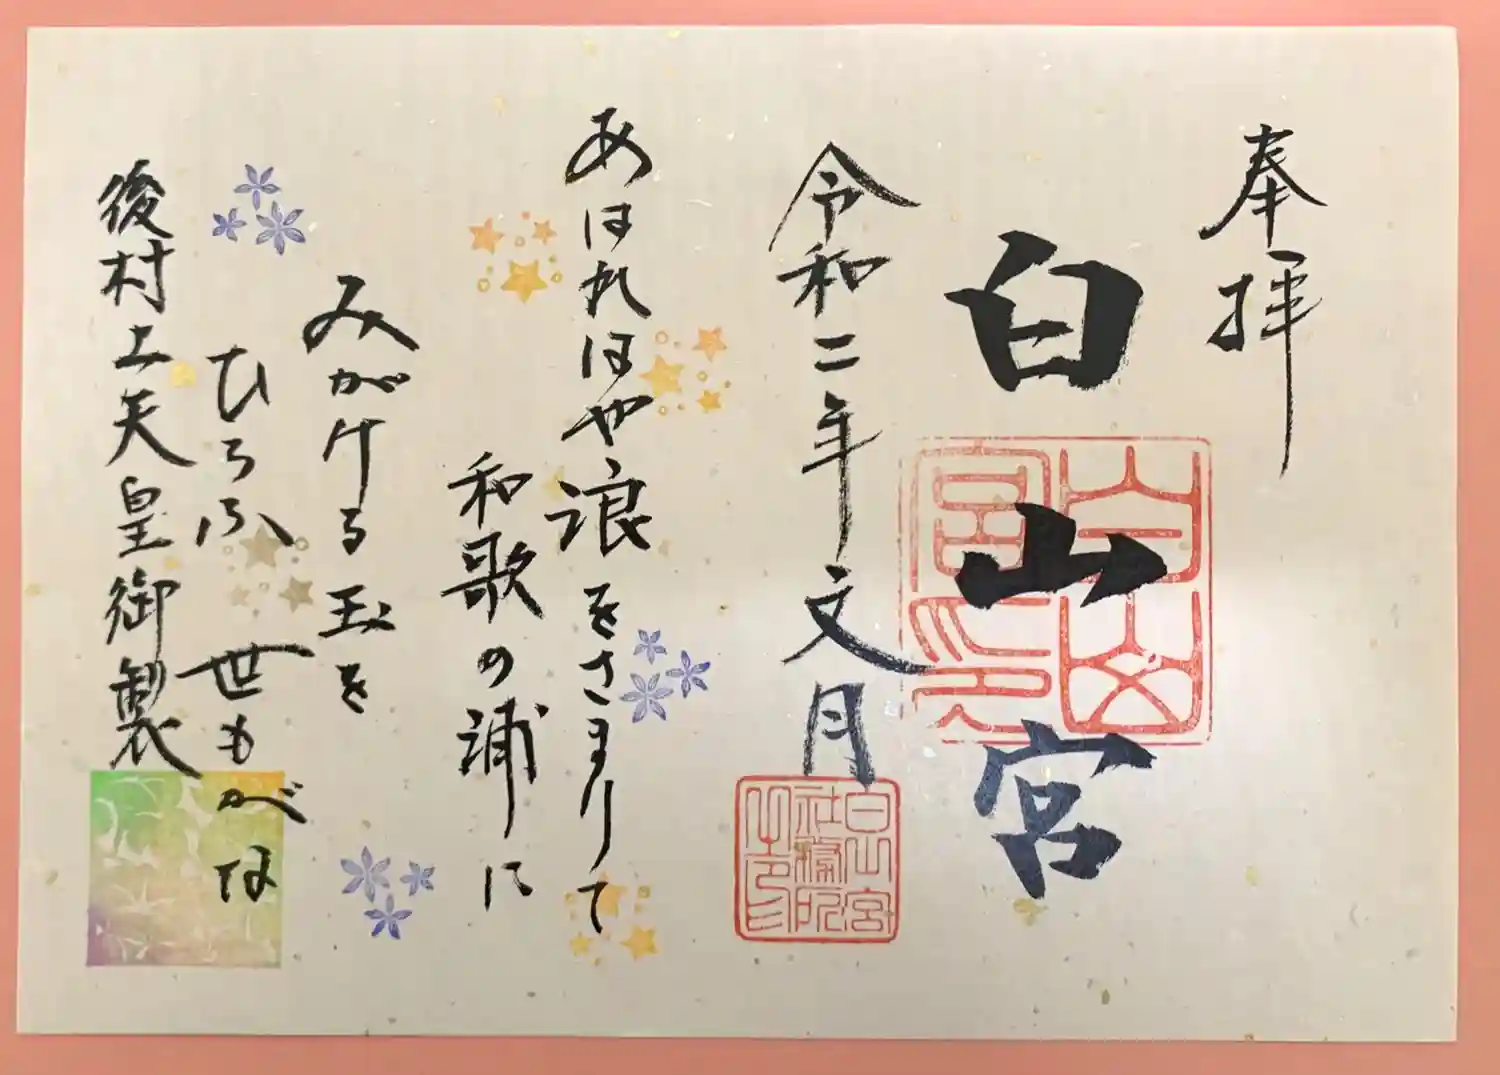 奉拝
白山宮
令和二年文月
あはれはや浪をさまりて
和歌の浦に
みがける玉を
ひろふ世もがな
後村上天皇御製
白山宮印
白山宮
社務所
之印